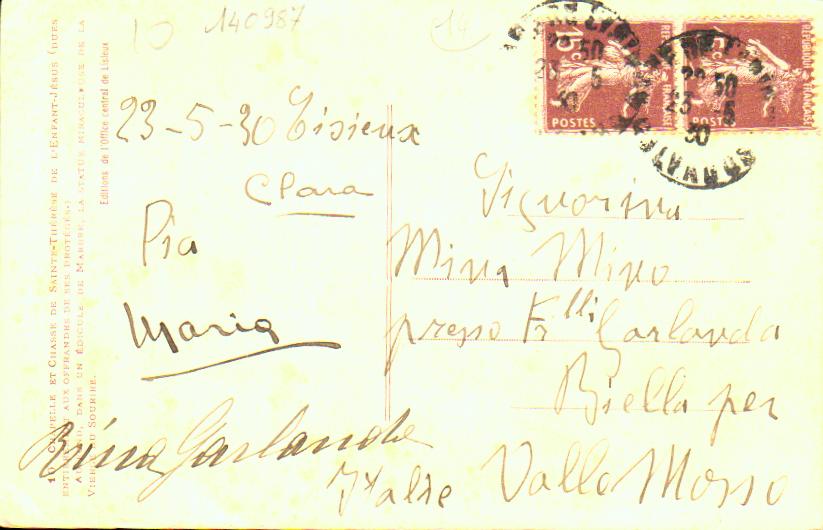 140987
14
23-5-30 Lisieux
Clara
Pia
Maria
Brina Garlanda
Signorina
Mina Mino
presso F.lli Garlanda
Biella per
Valle Mosso
Italie
1 CHAPELLE ET CHASSE DE SAINTE-THÉRÈSE DE L'ENFANT-JÉSUS (DUES
AUX OFFRANDES DE SES PROTÉGÉS.)
DANS UN ÉDICULE DE MARBRE, LA STATUE MIRACULEUSE DE LA
VIERGE DU SOURIRE.
Editions de l'Office central de Lisieux
15c
REPUBLIQUE FRANÇAISE
POSTES
15c
REPUBLIQUE FRANÇAISE
POSTES
22 50
23 5
30
22 50
23 5
30
CALVADOS